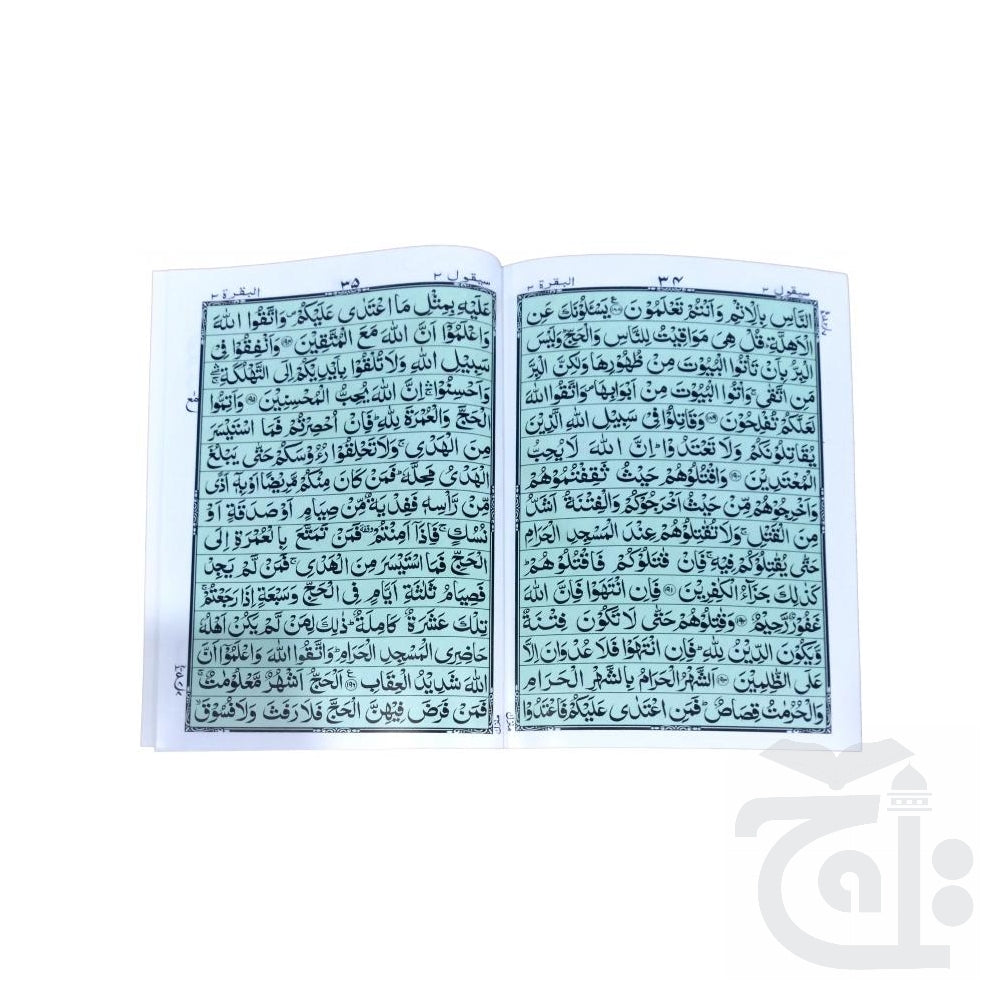 سیقول ٢
٣٤
البقرة ٢
النَّاسِ بِالْاِثْمِ وَاَنْتُمْ تَعْلَمُوْنَ ﴿١٨٨﴾ يَسْـَٔلُوْنَكَ عَنِ
الْاَهِلَّةِؕ قُلْ هِىَ مَوَاقِيْتُ لِلنَّاسِ وَالْحَجِّؕ وَلَيْسَ
الْبِرُّ بِاَنْ تَاْتُوا الْبُيُوْتَ مِنْ ظُهُوْرِهَا وَلٰكِنَّ الْبِرَّ
مَنِ اتَّقٰىۚ وَاْتُوا الْبُيُوْتَ مِنْ اَبْوَابِهَا۪ وَاتَّقُوا اللّٰهَ
لَعَلَّكُمْ تُفْلِحُوْنَ ﴿١٨٩﴾ وَقَاتِلُوْا فِىْ سَبِيْلِ اللّٰهِ الَّذِيْنَ
يُقَاتِلُوْنَكُمْ وَلَا تَعْتَدُوْاؕ اِنَّ اللّٰهَ لَا يُحِبُّ
الْمُعْتَدِيْنَ ﴿١٩٠﴾ وَاقْتُلُوْهُمْ حَيْثُ ثَقِفْتُمُوْهُمْ
وَاَخْرِجُوْهُمْ مِّنْ حَيْثُ اَخْرَجُوْكُمْ وَالْفِتْنَةُ اَشَدُّ
مِنَ الْقَتْلِۚ وَلَا تُقٰتِلُوْهُمْ عِنْدَ الْمَسْجِدِ الْحَرَامِ
حَتّٰى يُقٰتِلُوْكُمْ فِيْهِۚ فَاِنْ قٰتَلُوْكُمْ فَاقْتُلُوْهُمْؕ
كَذٰلِكَ جَزَآءُ الْكٰفِرِيْنَ ﴿١٩١﴾ فَاِنِ انْتَهَوْا فَاِنَّ اللّٰهَ
غَفُوْرٌ رَّحِيْمٌ ﴿١٩٢﴾ وَقٰتِلُوْهُمْ حَتّٰى لَا تَكُوْنَ فِتْنَةٌ
وَّيَكُوْنَ الدِّيْنُ لِلّٰهِؕ فَاِنِ انْتَهَوْا فَلَا عُدْوَانَ اِلَّا
عَلَى الظّٰلِمِيْنَ ﴿١٩٣﴾ اَلشَّهْرُ الْحَرَامُ بِالشَّهْرِ الْحَرَامِ
وَالْحُرُمٰتُ قِصَاصٌؕ فَمَنِ اعْتَدٰى عَلَيْكُمْ فَاعْتَدُوْا
سیقول ٢
٣٥
البقرة ٢
عَلَيْهِ بِمِثْلِ مَا اعْتَدٰى عَلَيْكُمْ۪ وَاتَّقُوا اللّٰهَ
وَاعْلَمُوْٓا اَنَّ اللّٰهَ مَعَ الْمُتَّقِيْنَ ﴿١٩٤﴾ وَاَنْفِقُوْا فِىْ
سَبِيْلِ اللّٰهِ وَلَا تُلْقُوْا بِاَيْدِيْكُمْ اِلَى التَّهْلُكَةِۛۚ
وَاَحْسِنُوْاۛۚ اِنَّ اللّٰهَ يُحِبُّ الْمُحْسِنِيْنَ ﴿١٩٥﴾ وَاَتِمُّوا
الْحَجَّ وَالْعُمْرَةَ لِلّٰهِؕ فَاِنْ اُحْصِرْتُمْ فَمَا اسْتَيْسَرَ
مِنَ الْهَدْىِۚ وَلَا تَحْلِقُوْا رُءُوْسَكُمْ حَتّٰى يَبْلُغَ
الْهَدْىُ مَحِلَّهٗؕ فَمَنْ كَانَ مِنْكُمْ مَّرِيْضًا اَوْ بِهٖٓ اَذًى
مِّنْ رَّاْسِهٖ فَفِدْيَةٌ مِّنْ صِيَامٍ اَوْ صَدَقَةٍ اَوْ
نُسُكٍۚ فَاِذَآ اَمِنْتُمْ فَمَنْ تَمَتَّعَ بِالْعُمْرَةِ اِلَى
الْحَجِّ فَمَا اسْتَيْسَرَ مِنَ الْهَدْىِۚ فَمَنْ لَّمْ يَجِدْ
فَصِيَامُ ثَلٰثَةِ اَيَّامٍ فِى الْحَجِّ وَسَبْعَةٍ اِذَا رَجَعْتُمْؕ
تِلْكَ عَشَرَةٌ كَامِلَةٌؕ ذٰلِكَ لِمَنْ لَّمْ يَكُنْ اَهْلُهٗ
حَاضِرِى الْمَسْجِدِ الْحَرَامِؕ وَاتَّقُوا اللّٰهَ وَاعْلَمُوْٓا اَنَّ
اللّٰهَ شَدِيْدُ الْعِقَابِ ﴿١٩٦﴾ اَلْحَجُّ اَشْهُرٌ مَّعْلُوْمٰتٌۚ
فَمَنْ فَرَضَ فِيْهِنَّ الْحَجَّ فَلَا رَفَثَ وَلَا فُسُوْقَۙ